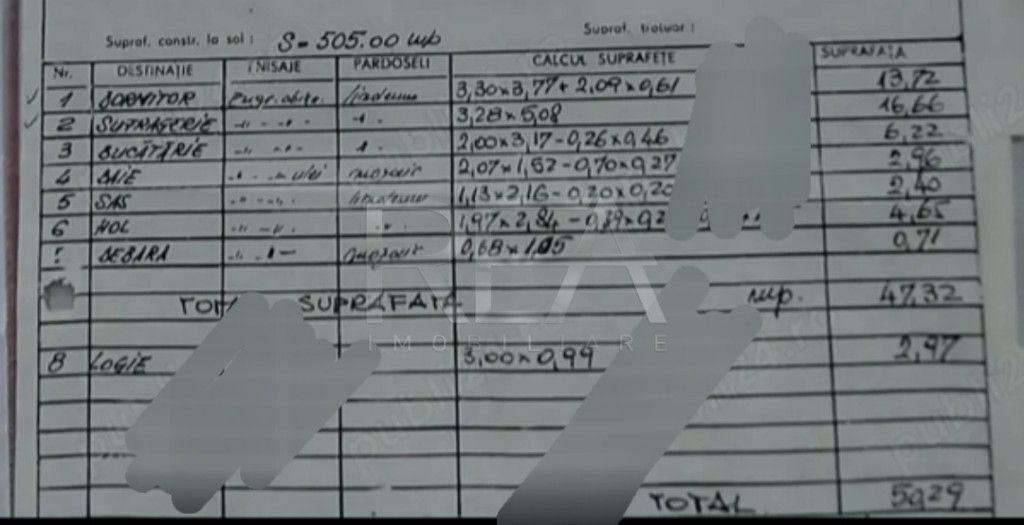 Supraf. constr. la sol: S=505.00 mp Supraf. trotuar:
Nr. DESTINAȚIE FINISAJE PARDOSELI CALCUL SUPRAFEȚE SUPRAFAȚA
1 DORMITOR zugr. obișn. linoleum 3,30×3,77+2,09×0,61 13,72
2 SUFRAGERIE -"- -"- -"- 3,28×5,08 16,66
3 BUCĂTĂRIE -"- -"- -"- 2,00×3,17-0,26×0,46 6,22
4 BAIE -"- ulei mozaic 2,07×1,52-0,70×0,27 2,96
5 SAS -"- -"- linoleum 1,13×2,16-0,20×0,20 2,40
6 HOL -"- -"- -"- 1,97×2,84-0,2 4,65
DEBARA -"- -"- mozaic 0,68×1,05 0,71
TOT SUPRAFAȚA mp. 47,32
REA
IMOBILIARE
8 LOGIE 3,00×0,99 2,97
publi24.ro
TOTAL 50,29